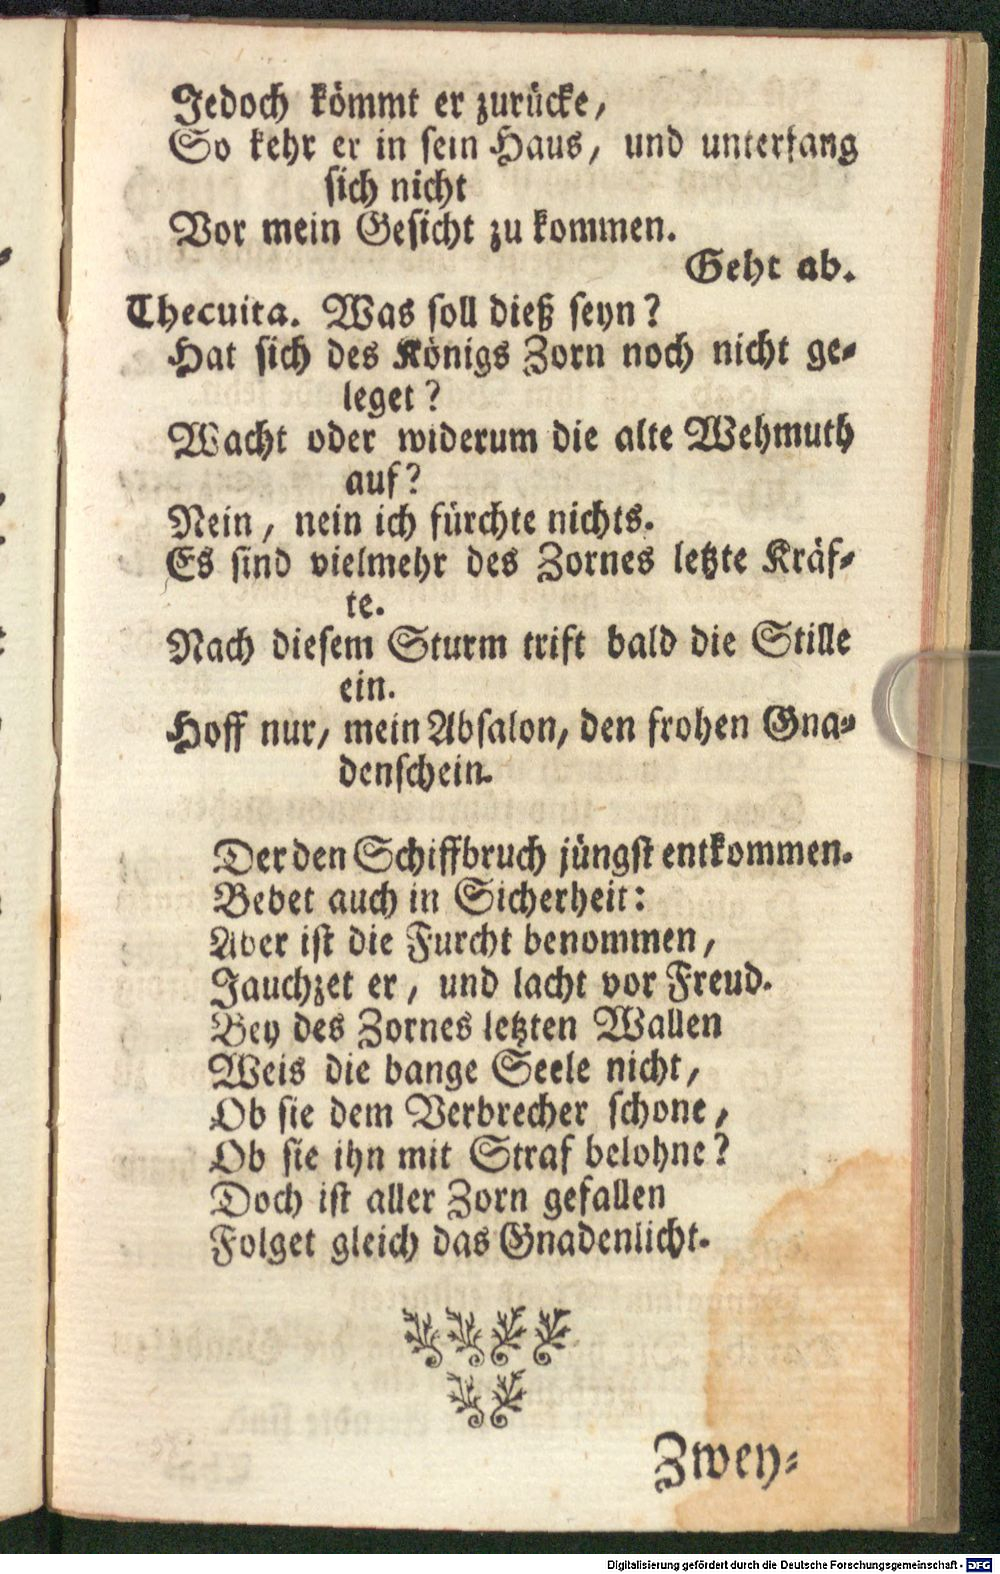 Jedoch kömmt er zurücke,
So kehr er in sein Haus, und unterfang
sich nicht
Vor mein Gesicht zu kommen.
Geht ab.
Thecuita. Was soll dieß seyn?
Hat sich des Königs Zorn noch nicht ge-
leget?
Wacht oder widerum die alte Wehmuth
auf?
Nein, nein ich fürchte nichts.
Es sind vielmehr des Zornes letzte Kräf-
te.
Nach diesem Sturm trift bald die Stille
ein.
Hoff nur, mein Absalon, den frohen Gna-
denschein.
Der den Schiffbruch jüngst entkommen.
Bebet auch in Sicherheit:
Aber ist die Furcht benommen,
Jauchzet er, und lacht vor Freud.
Bey des Zornes letzten Wallen
Weis die bange Seele nicht,
Ob sie dem Verbrecher schone,
Ob sie ihn mit Straf belohne?
Doch ist aller Zorn gefallen
Folget gleich das Gnadenlicht.
Zwey-
Digitalisierung gefördert durch die Deutsche Forschungsgemeinschaft - DFG